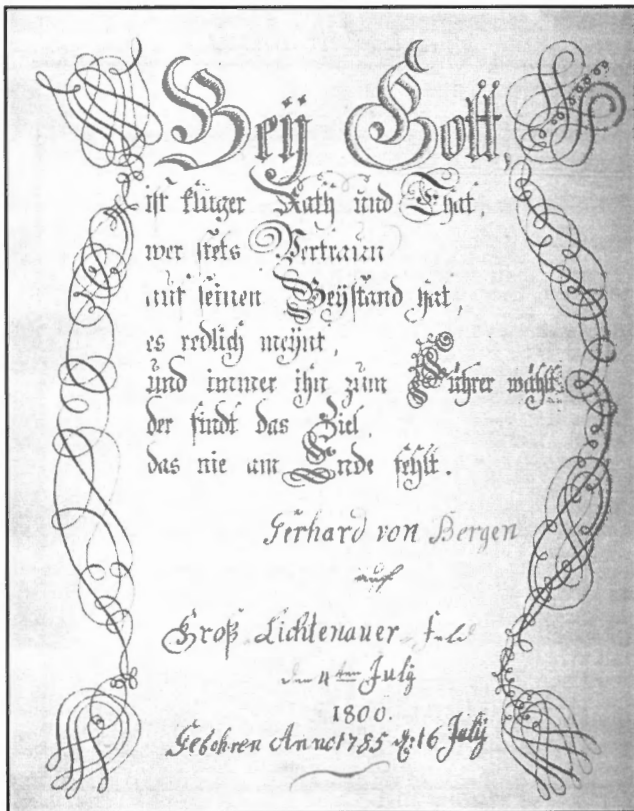 Beÿ Gott,
ist kluger Rath und That,
wer stets Vertraun
auf seinen Beÿstand hat,
es redlich meÿnt,
und immer ihn zum Führer wählt
der findt das Ziel,
das nie am Ende fehlt.
Gerhard von Bergen
auf
Groß Lichtenauer Feld
den 4ten Julÿ
1800.
Gebohren Anno 1785 16 Julÿ